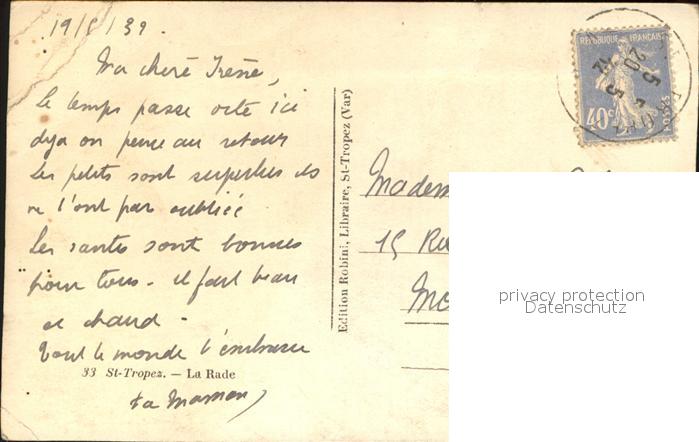 19/5/39.
Ma chere Irène,
Le temps passe vite ici
deja on pense au retour
Les petits sont superbes ils
ne t'ont pas oubliée
Les santés sont bonnes
pour tous - il fait beau
et chaud -
Tout le monde t'embrasse
33 St-Tropez. — La Rade
ta Maman
Edition Robini, Libraire, St-Tropez (Var)
REPUBLIQUE FRANÇAISE
40c
POSTES
20 5
Madem
15 Rue
privacy protection
Datenschutz